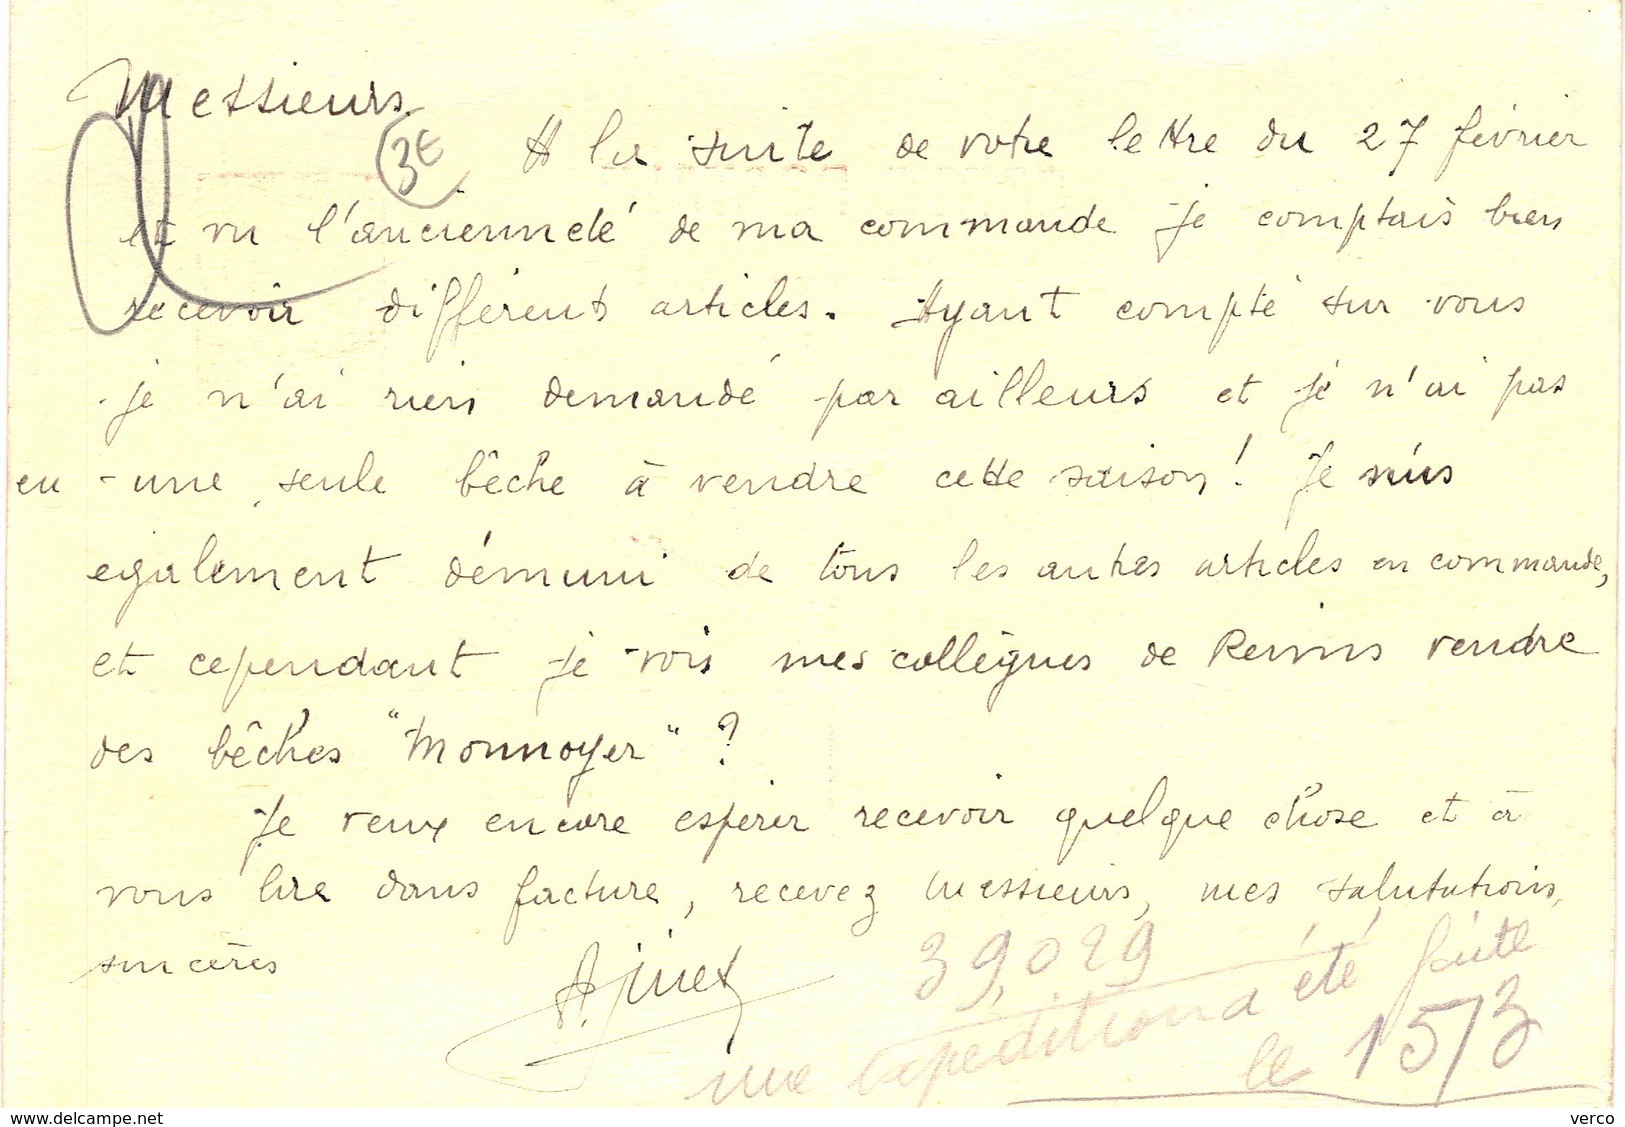 Messieurs
3E
A la suite de votre lettre du 27 février
et vu l'ancienneté de ma commande je comptais bien
recevoir différents articles. Ayant compté sur vous
je n'ai rien demandé par ailleurs et je n'ai pas
eu une seule bêche à vendre cette saison! Je suis
egalement démuni de tous les autres articles en commande,
et cependant je vois mes collègues de Reims vendre
des bêches "Monnoyer" ?
Je veux encore espérer recevoir quelque chose et à
vous lire dans facture, recevez Messieurs, mes salutations,
sincères
39,029
une expedition a été faite
le 15/3
www.delcampe.net
verco